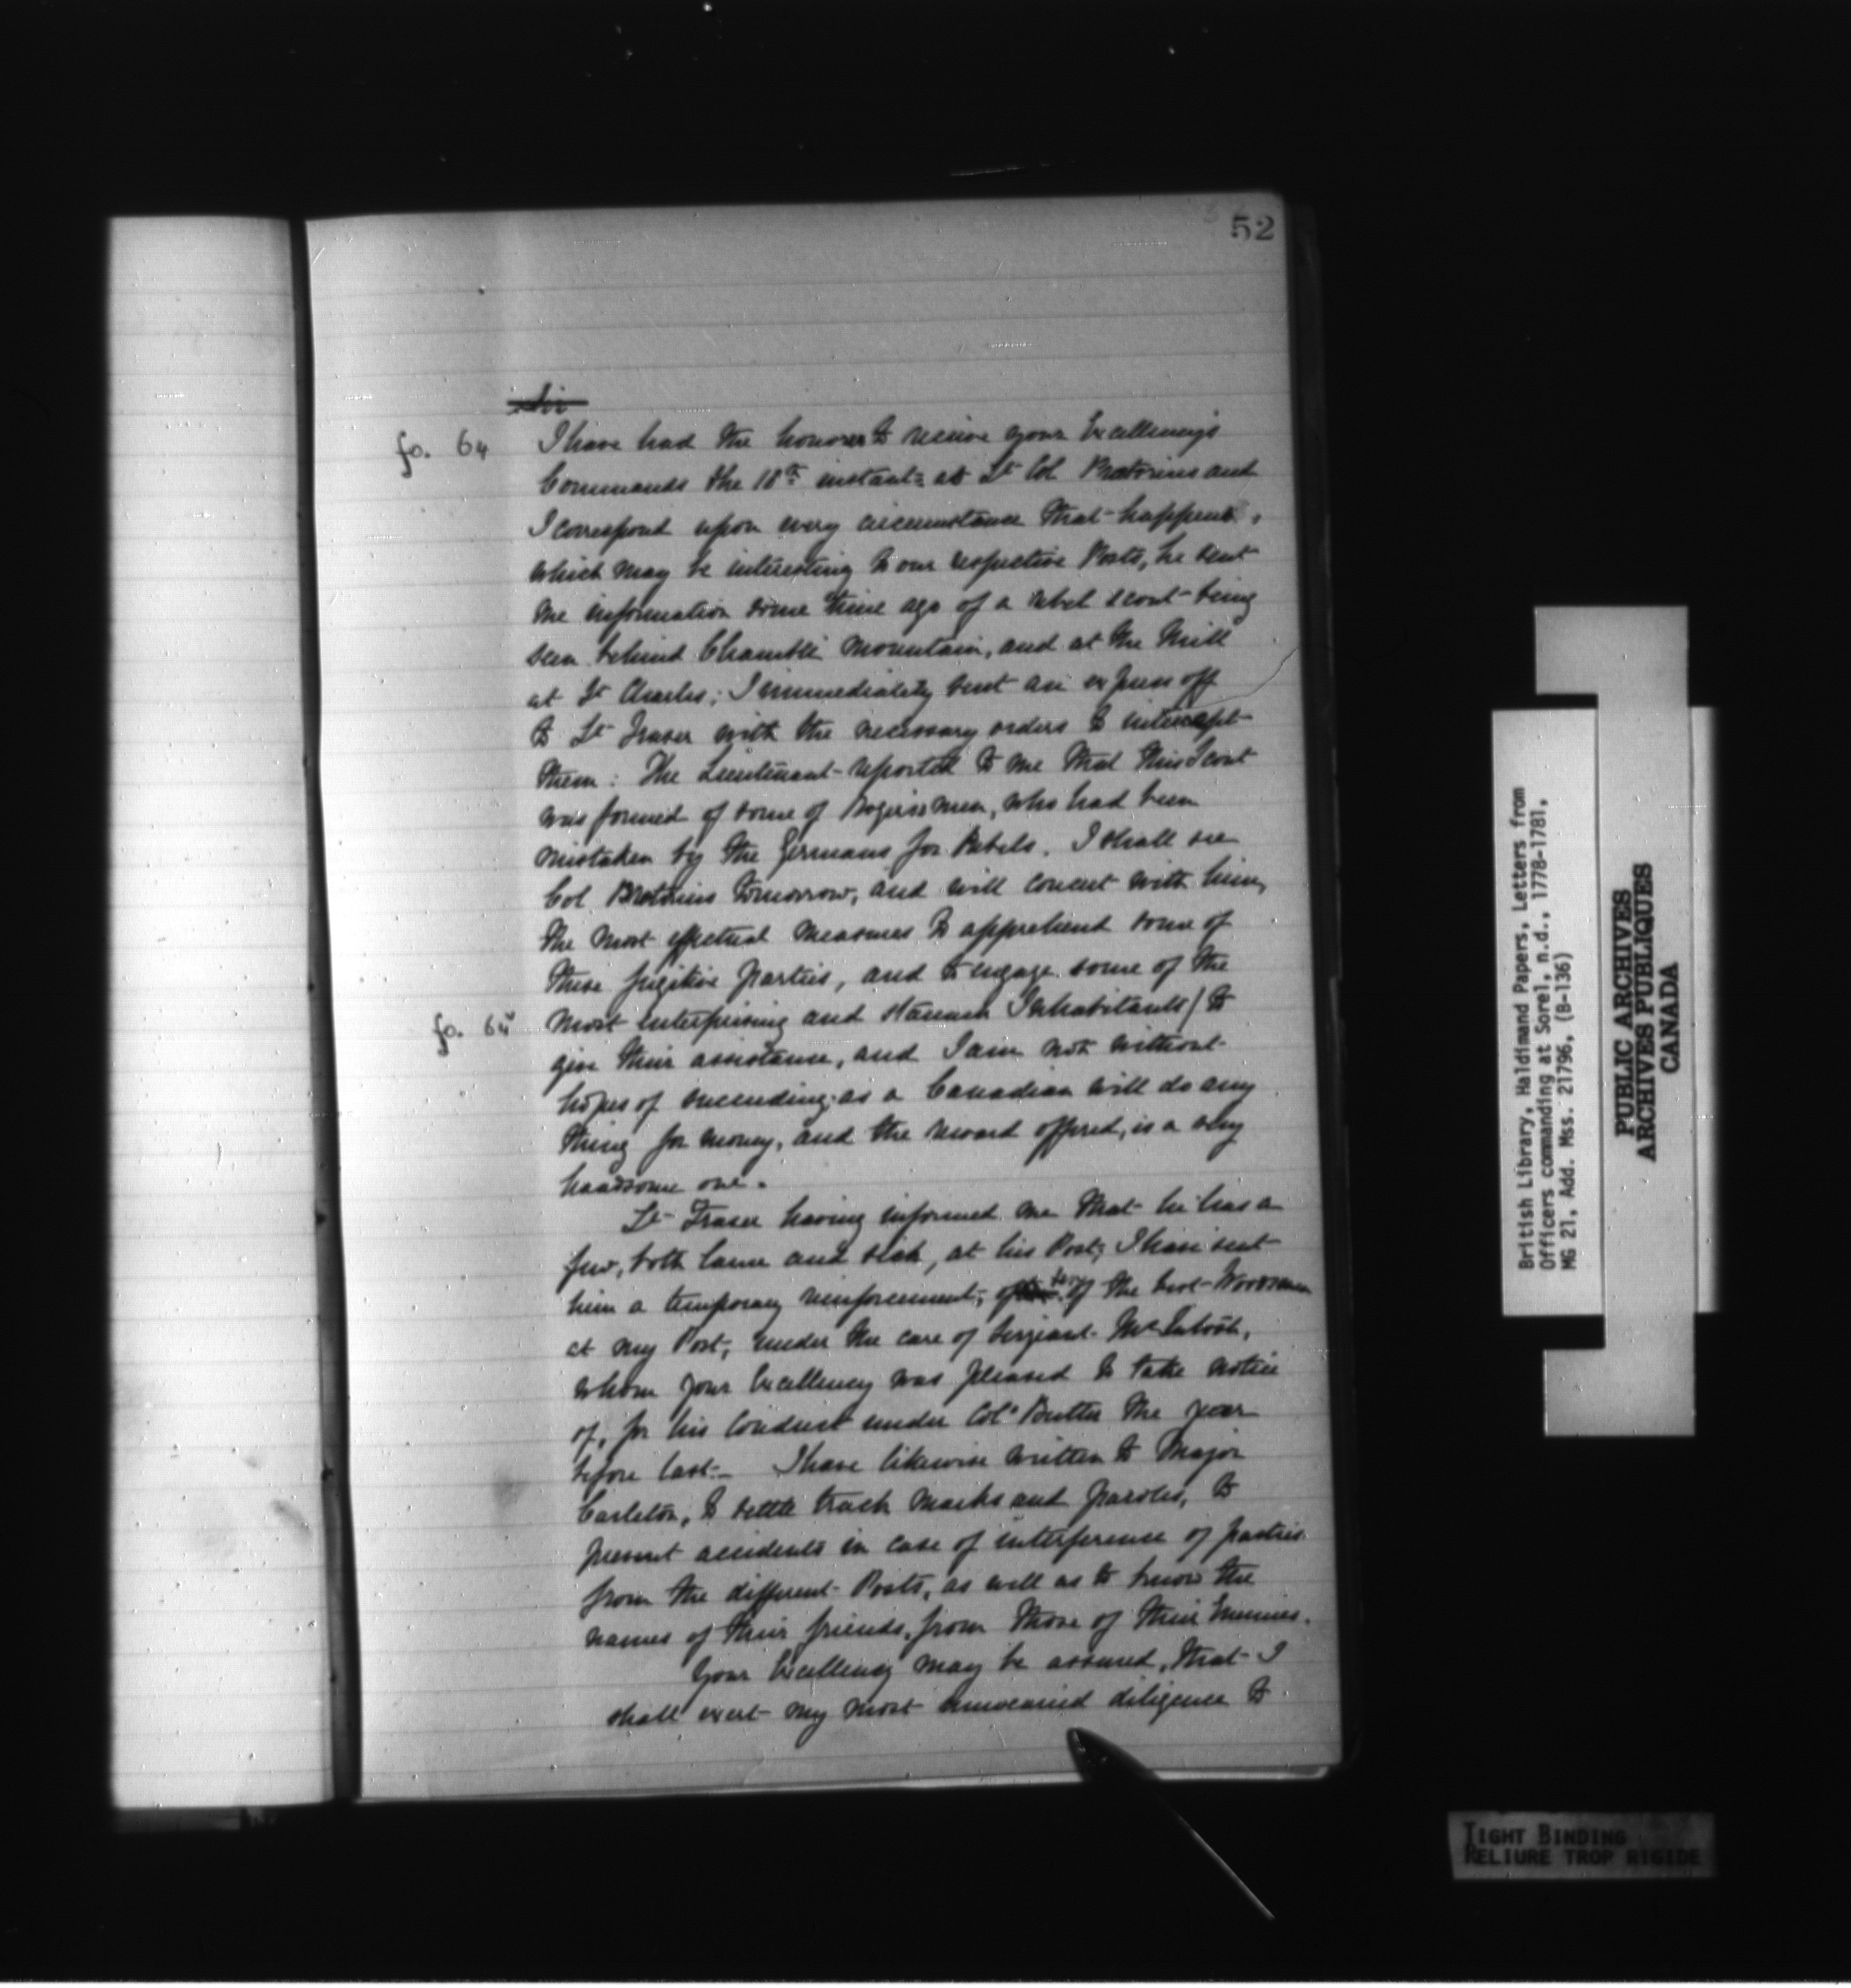 52
Sir
fo. 64 I have had the honour to receive your Excellency's
Commands the 18th instant: as Lt Col Pretorius and
I correspond upon every circumstance that happens,
which may be interesting to our respective Posts, he sent
me information some time ago of a rebel scout being
seen behind Chamblé mountain, and at the Mill
at St Charles; I immediately sent an express off
to Lt Fraser with the necessary orders to intercept
them: The Lieutenant reported to me that this Scout
was formed of some of Rogers's men, who had been
mistaken by the Germans for Rebels. I shall see
Col Pretorius tomorrow, and will concert with him,
the most effectual measures to apprehend some of
these fugitive parties, and to engage some of the
fo. 64v most enterprising and staunch Inhabitants / to
give their assistance, and I am not without
hopes of succeeding; as a Canadian will do any
thing for money, and the reward offered, is a very
handsome one.
Lt Fraser having informed me that he has a
few, both lame and sick, at his Post; I have sent
him a temporary reinforcement, of the best Woodsmen
at my Post, under the care of Serjeant McIntosh,
whom your Excellency was pleased to take notice
of, for his Conduct under Colo Butler the year
before last. I have likewise written to Major
Carleton, to settle track marks and paroles, to
prevent accidents in case of interference of parties
from the different Posts, as well as to know the
names of their friends, from those of their Enemies.
Your Excellency may be assured, that I
shall exert my most unwearied diligence to
British Library, Haldimand Papers, Letters from
Officers commanding at Sorel, n.d., 1778-1781,
MG 21, Add. Mss. 21796, (B-136)
PUBLIC ARCHIVES
ARCHIVES PUBLIQUES
CANADA
TIGHT BINDING
RELIURE TROP RIGIDE